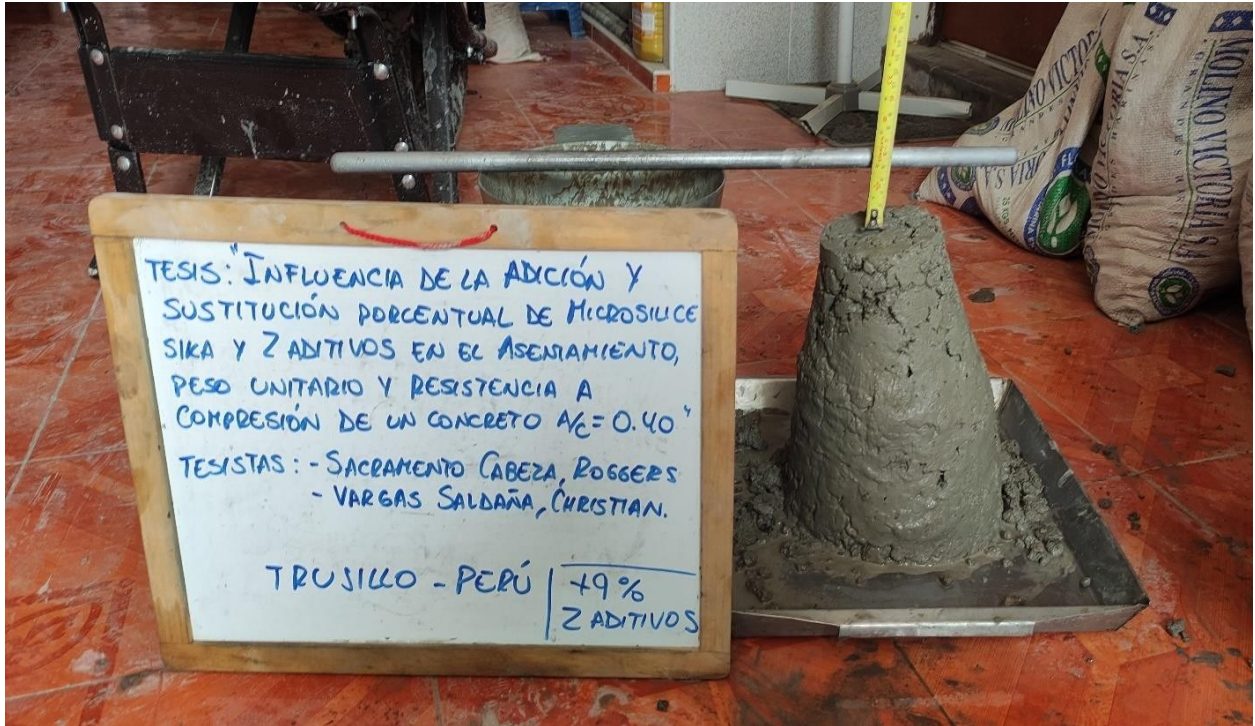 TESIS: "INFLUENCIA DE LA ADICIÓN Y
SUSTITUCIÓN PORCENTUAL DE MICROSILICE
SIKA Y 2 ADITIVOS EN EL ASENTAMIENTO,
PESO UNITARIO Y RESISTENCIA A
COMPRESIÓN DE UN CONCRETO A/C = 0.40"
TESISTAS: - SACRAMENTO CABEZA, ROGGERS
- VARGAS SALDAÑA, CHRISTIAN.
TRUJILLO - PERÚ
+9%
2 ADITIVOS
MOLINO VICTORIA S.A.